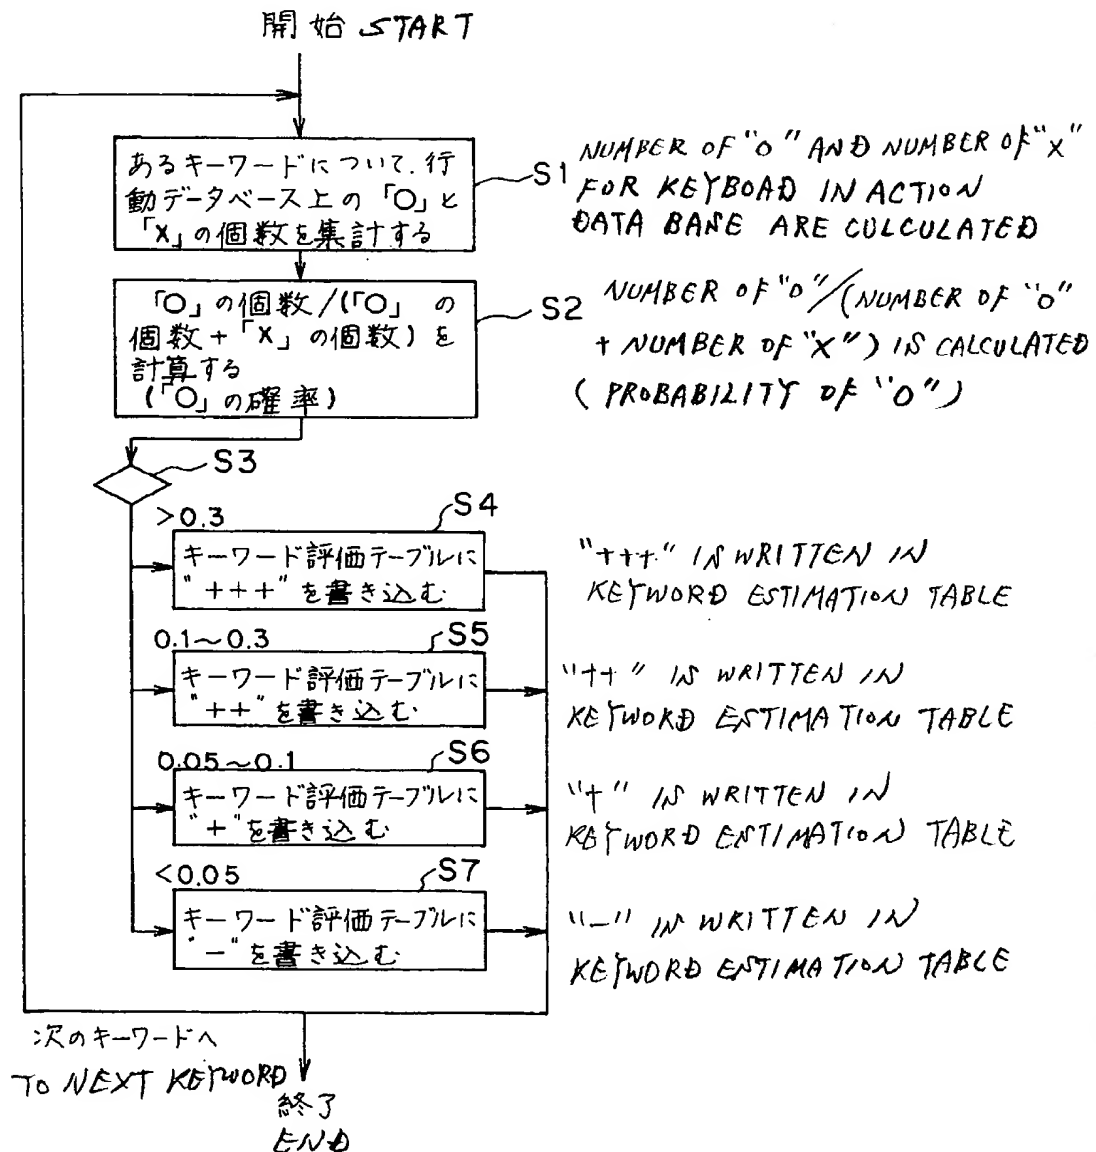 開始 START
あるキーワードについて、行
動データベース上の「O」と
「X」の個数を集計する
S1
NUMBER OF "O" AND NUMBER OF "X"
FOR KEYBOAD IN ACTION
DATA BASE ARE CULCULATED
「O」の個数/(「O」の
個数+「X」の個数)を
計算する
(「O」の確率)
S2
NUMBER OF "O"/(NUMBER OF "O"
+ NUMBER OF "X") IS CALCULATED
(PROBABILITY OF "O")
S3
>0.3
S4
キーワード評価テーブルに
"+++"を書き込む
"+++" IS WRITTEN IN
KEYWORD ESTIMATION TABLE
0.1~0.3
S5
キーワード評価テーブルに
"++"を書き込む
"++" IS WRITTEN IN
KEYWORD ESTIMATION TABLE
0.05~0.1
S6
キーワード評価テーブルに
"+"を書き込む
"+" IS WRITTEN IN
KEYWORD ESTIMATION TABLE
<0.05
S7
キーワード評価テーブルに
"-"を書き込む
"-" IS WRITTEN IN
KEYWORD ESTIMATION TABLE
次のキーワードへ
TO NEXT KEYWORD
終了
END